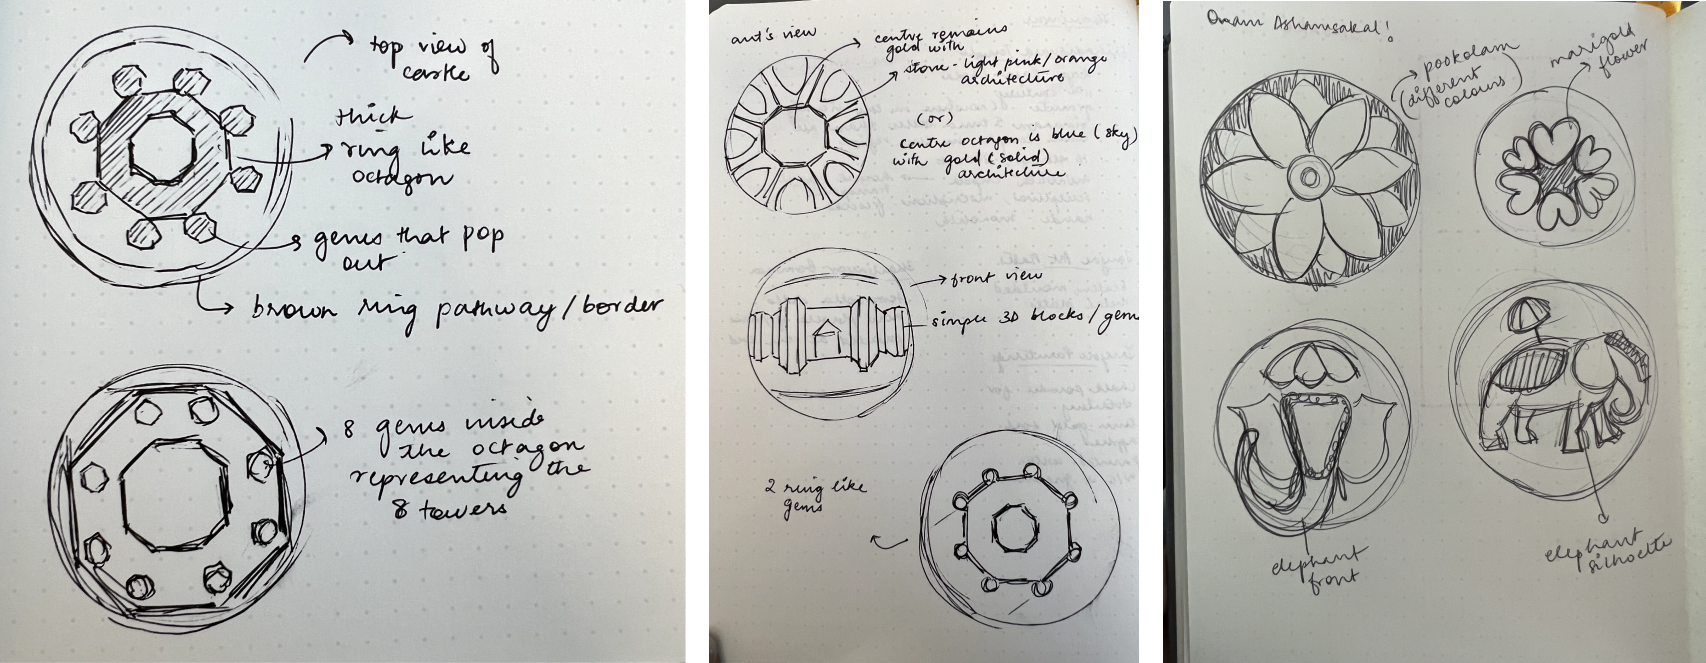 top view of
castle
thick
ring like
octagon
gems that pop
out
brown ring pathway/border
8 gems inside
the octagon
representing the
8 towers
ant's view
centre remains
gold with
stone - light pink/orange
architecture
(or)
centre octagon is blue (sky)
with gold (solid)
architecture
front view
simple 3D blocks/gem
2 ring like
gems
Onam Ashamsakal!
pookolam
(different
colours)
marigold
flower
elephant
front
elephant
silhoette